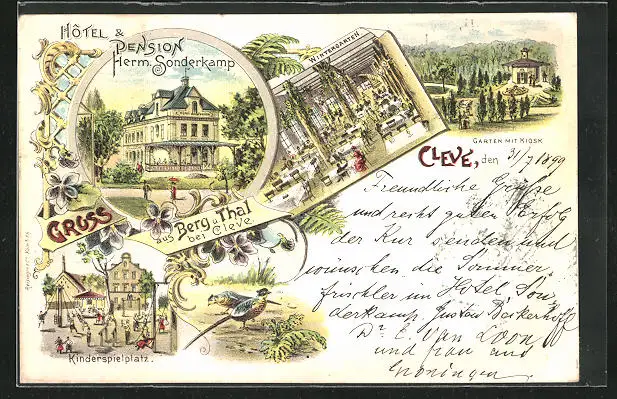 HÔTEL &
PENSION
Herm. Sonderkamp
WINTERGARTEN
GARTEN MIT KIOSK
CLEVE, den 31/7 1899
GRUSS
aus Berg u. Thal
bei Cleve.
Kinderspielplatz.
Freundliche Grüsse
und recht guten Erfolg
der Kur senden und
wünschen die Sommer
frischler im Hotel Son
derkamp. Gustav Bäckerhoff
Dr. E. Van Loon
und frau aus
Groningen